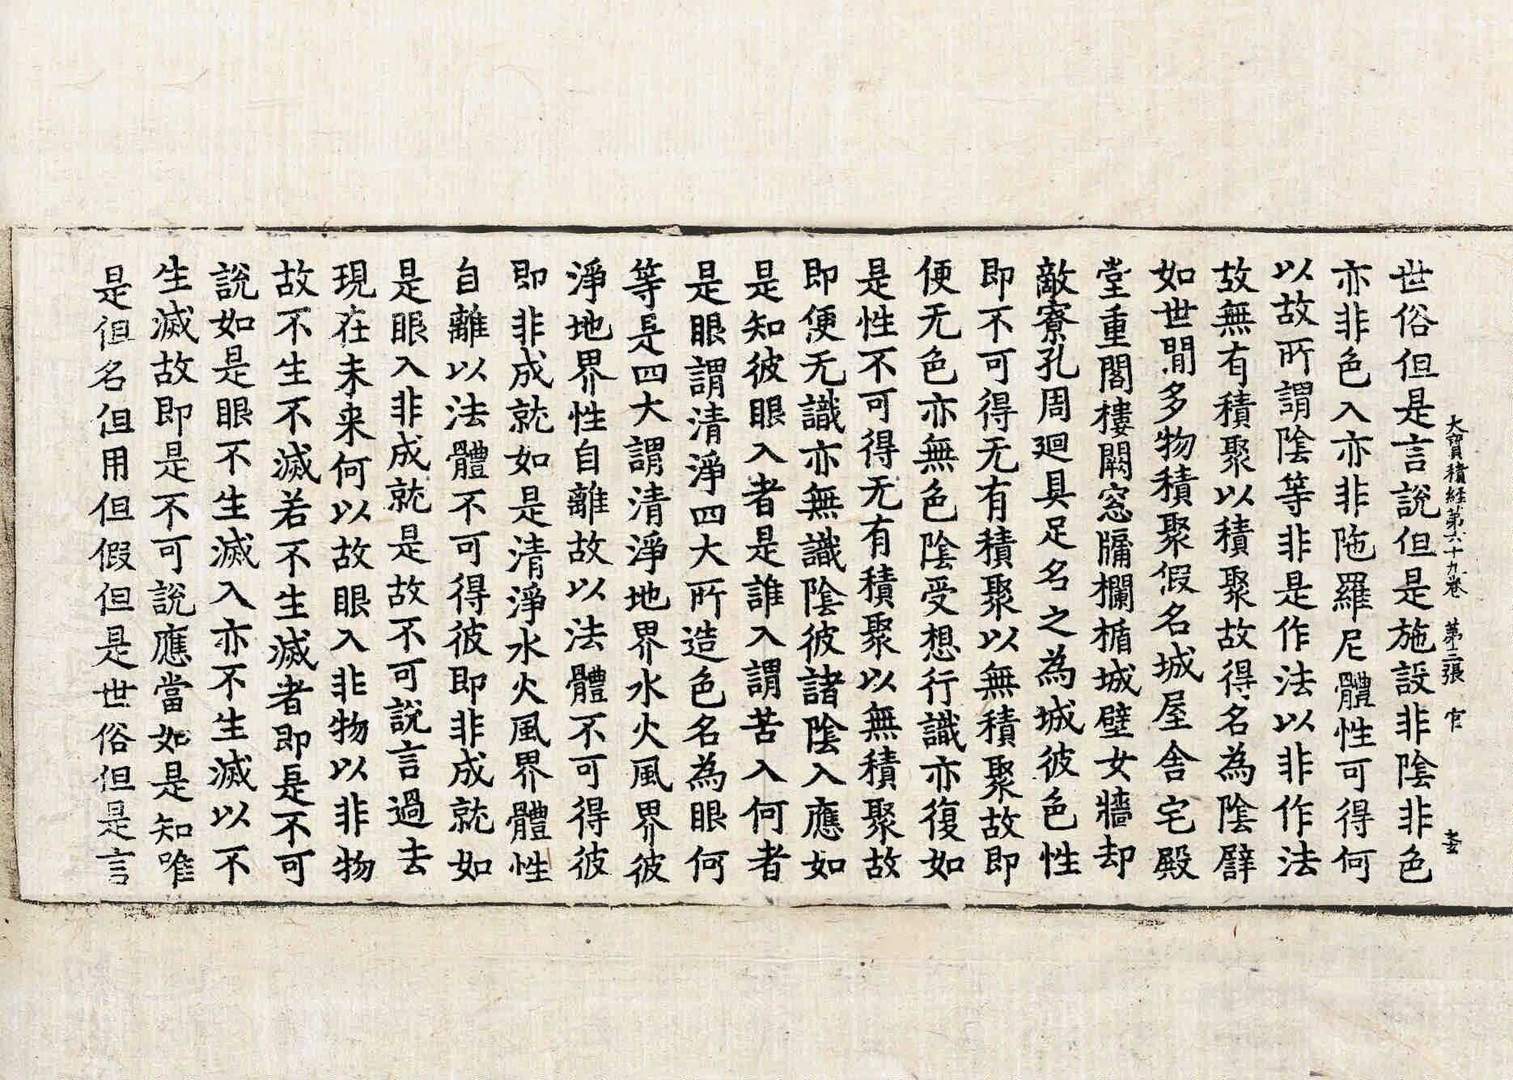 大寶積経苐六十九卷 苐二張 官
世俗但是言說但是施設非陰非色
亦非色入亦非陁羅尼體性可得何
以故所謂陰等非是作法以非作法
故無有積聚以積聚故得名為陰譬
如世間多物積聚假名城屋舍宅殿
堂重閣樓闕窓牖欄楯城壁女牆却
敵寮孔周迴具足名之為城彼色性
即不可得无有積聚以無積聚故即
便无色亦無色陰受想行識亦復如
是性不可得无有積聚以無積聚故
即便无識亦無識陰彼諸陰入應如
是知彼眼入者是誰入謂苦入何者
是眼謂清淨四大所造色名為眼何
等是四大謂清淨地界水火風界彼
淨地界性自離故以法體不可得彼
即非成就如是清淨水火風界體性
自離以法體不可得彼即非成就如
是眼入非成就是故不可說言過去
現在未来何以故眼入非物以非物
故不生不滅若不生滅者即是不可
說如是眼不生滅入亦不生滅以不
生滅故即是不可說應當如是知唯
是但名但用但假但是世俗但是言